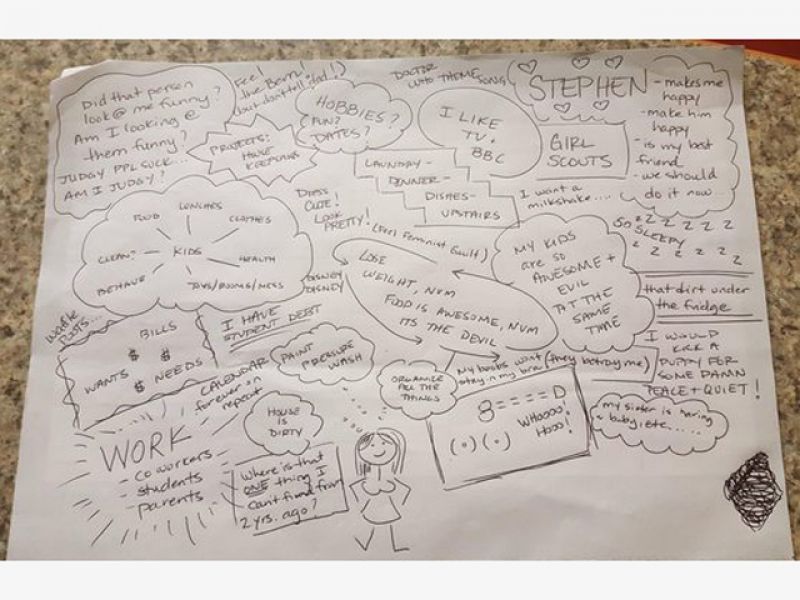 Did that person
look@ me funny?
Am I looking @
them funny?
JUDGY PPL SUCK...
AM I JUDGY?
Feel
the Bern!
(but don't tell dad!)
PROJECTS:
HOUSE
KEEPING
HOBBIES?
(FUN?
DATES?
DOCTOR
WHO THEME
SONG
I LIKE
TV.
BBC
STEPHEN
- makes me
happy
- make him
happy
- is my best
friend
- we should
do it now...
GIRL
SCOUTS
LAUNDRY-
DINNER-
DISHES-
UPSTAIRS
I want a
milkshake....
SO
SLEEPY
z z z z z z
z z z z z
FOOD
LUNCHES
CLOTHES
CLEAN?
KIDS
HEALTH
BEHAVE
TOYS/ROOMS/MESS
DRESS
CUTE!
LOOK
PRETTY!
(Feel Feminist Guilt)
DISNEY
DISNEY
LOSE
WEIGHT, NUM
FOOD IS AWESOME, NUM
ITS THE DEVIL
MY KIDS
are so
AWESOME +
EVIL
AT THE
SAME
TIME
that dirt under
the fridge
I WOULD
KICK A
PUPPY FOR
SOME DAMN
PEACE + QUIET!
BILLS
$ $
WANTS $ NEEDS
I HAVE
STUDENT DEBT
CALENDAR
forever on
repeat
PAINT
PRESSURE
WASH
ORGANIZE
ALL THE
THINGS
My boobs won't
stay in my bra
(they betray me)
8====D
(.)(.)
WHOOOO!
HOOO!
my sister is having
a baby, etc.....
WORK
- coworkers
- students
- parents
HOUSE
IS
DIRTY
Where is that
ONE thing I
can't find from
2 yrs. ago?